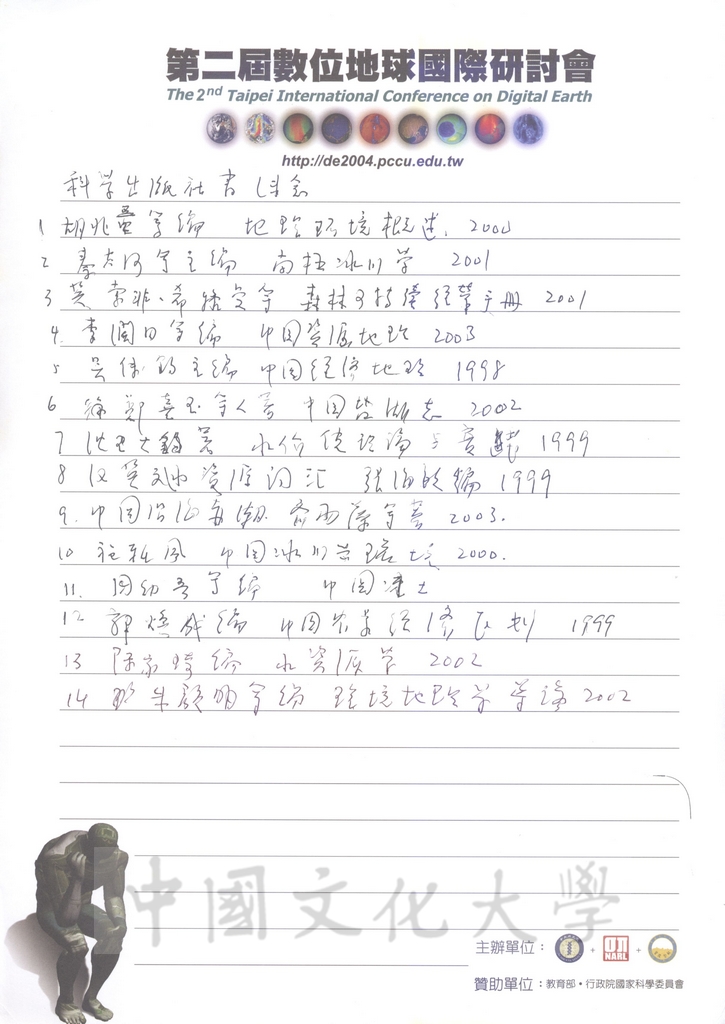 第二屆數位地球國際研討會
The 2nd Taipei International Conference on Digital Earth
http://de2004.pccu.edu.tw
科学出版社书
1 胡兆量等编 地理环境概述. 2000
2 秦大河等主编 南极冰川学 2001
3 英 索菲·希格曼等 森林可持续经营手册 2001
4. 李润田等编 中国资源地理 2003
5 吴传钧主编 中国经济地理 1998
6 徐 嘉 等人著 中国 志 2002
7 沈大 著 水价 论与实 1999
8 汉英 水资源词汇 张 编 1999
9. 中国沿海赤潮 齐雨藻等著 2003.
10 中国冰川 境 2000.
11. 周幼吾等编 中国冻土
12 郭焕成编 中国农业经济区划 1999
13 陈家琦编 水资源学 2002
14 朱颜明等编 环境地理学导论 2002
中國文化大學
主辦單位：
NARL
贊助單位：教育部・行政院國家科學委員會